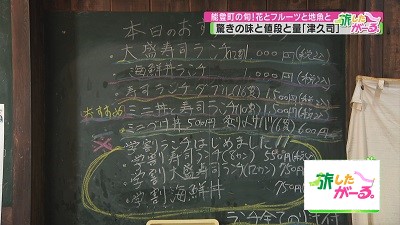 能登町の旬!花とフルーツと地魚と
驚きの味と値段と量「津久司」
旅したがーる。
本日のおすすめ
・大盛寿司ランチ 1000円(税込)
・海鮮丼ランチ 1000円
・寿司ランチダブル(16貫)1,500円(税込)
おすすめ ミニ丼と寿司ランチ(10貫)1,500円(税込)
・ミニづけ丼 500円 (6貫)600円
学割ランチはじめました!!
・学割寿司ランチ(8カン)550円(税込)
・学割大盛寿司ランチ(12カン)750円
・学割海鮮丼 750円
ランチ全て 付
旅した
がーる。